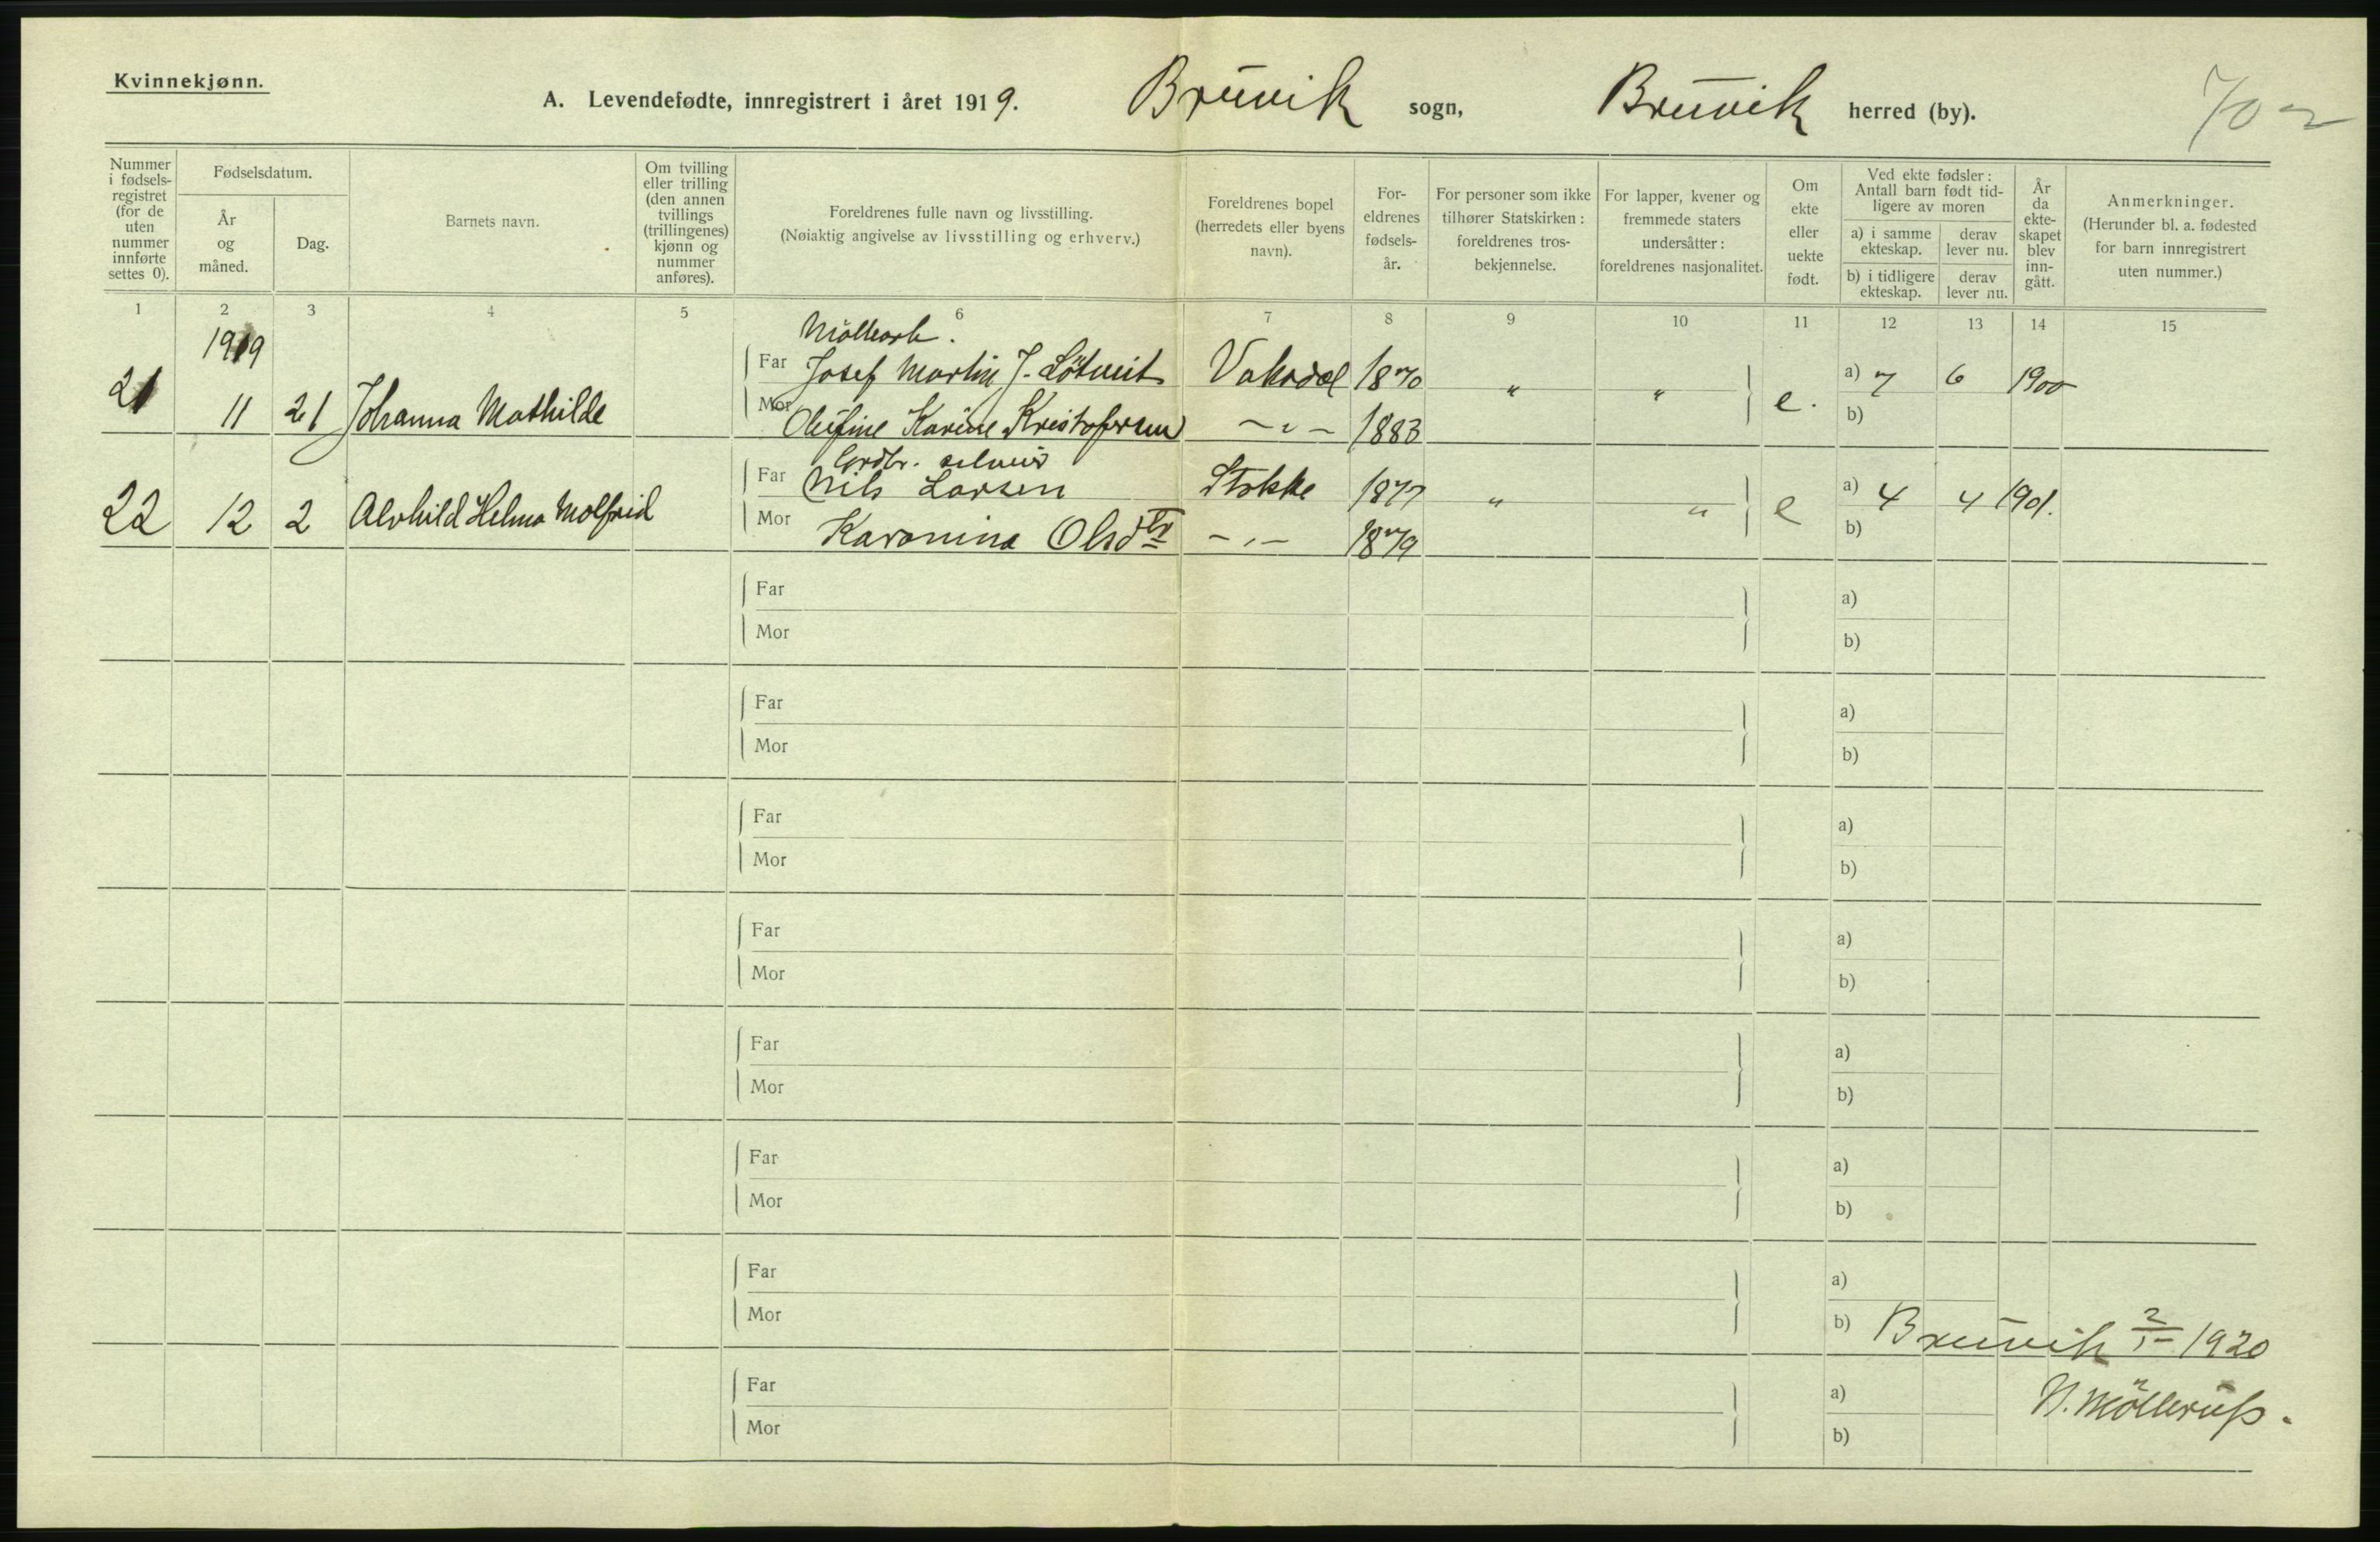 Kvinnekjønn.
A. Levendefødte, innregistrert i året 1919. Bruvik sogn, Bruvik herred (by).
70
Nummer i fødsels-registret (for de uten nummer innførte settes 0).
Fødselsdatum.
År og måned.
Dag.
Barnets navn.
Om tvilling eller trilling (den annen tvillings (trillingenes) kjønn og nummer anføres).
Foreldrenes fulle navn og livsstilling.
(Nøiaktig angivelse av livsstilling og erhverv.)
Foreldrenes bopel (herredets eller byens navn).
For-eldrenes fødsels-år.
For personer som ikke tilhører Statskirken: foreldrenes tros-bekjennelse.
For lapper, kvener og fremmede staters undersåtter: foreldrenes nasjonalitet.
Om ekte eller uekte født.
Ved ekte fødsler: Antall barn født tid-ligere av moren
a) i samme ekteskap.
derav lever nu.
b) i tidligere ekteskap.
derav lever nu.
År da ekte-skapet blev inn-gått.
Anmerkninger.
(Herunder bl. a. fødested for barn innregistrert uten nummer.)
1 2 3 4 5 6 7 8 9 10 11 12 13 14 15
1919
Möllearb.
21 11 21 Johanna Mathilde
Far Josef Martin J. Lötveit Vaksdal 1870 " " e. a) 7 6 1900
Mor Olufine Karine Kristofersen - " - 1883 b)
Grdbr. selveier
22 12 2 Alvhild Helma Molfrid
Far Nils Larsen Stokke 1877 " " e a) 4 4 1901.
Mor Karonina Olsdtr - " - 1879 b)
Far a)
Mor b)
Far a)
Mor b)
Far a)
Mor b)
Far a)
Mor b)
Far a)
Mor b)
Far a)
Mor b)
Far a)
Mor b) Bruvik 2/1- 1920
Far a)
Mor b)